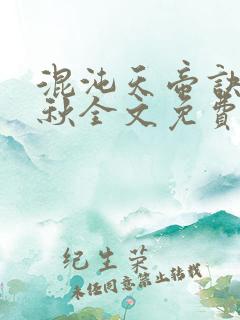 混沌天帝訣
秋全文免費
纪生荣
未经同意禁止转载